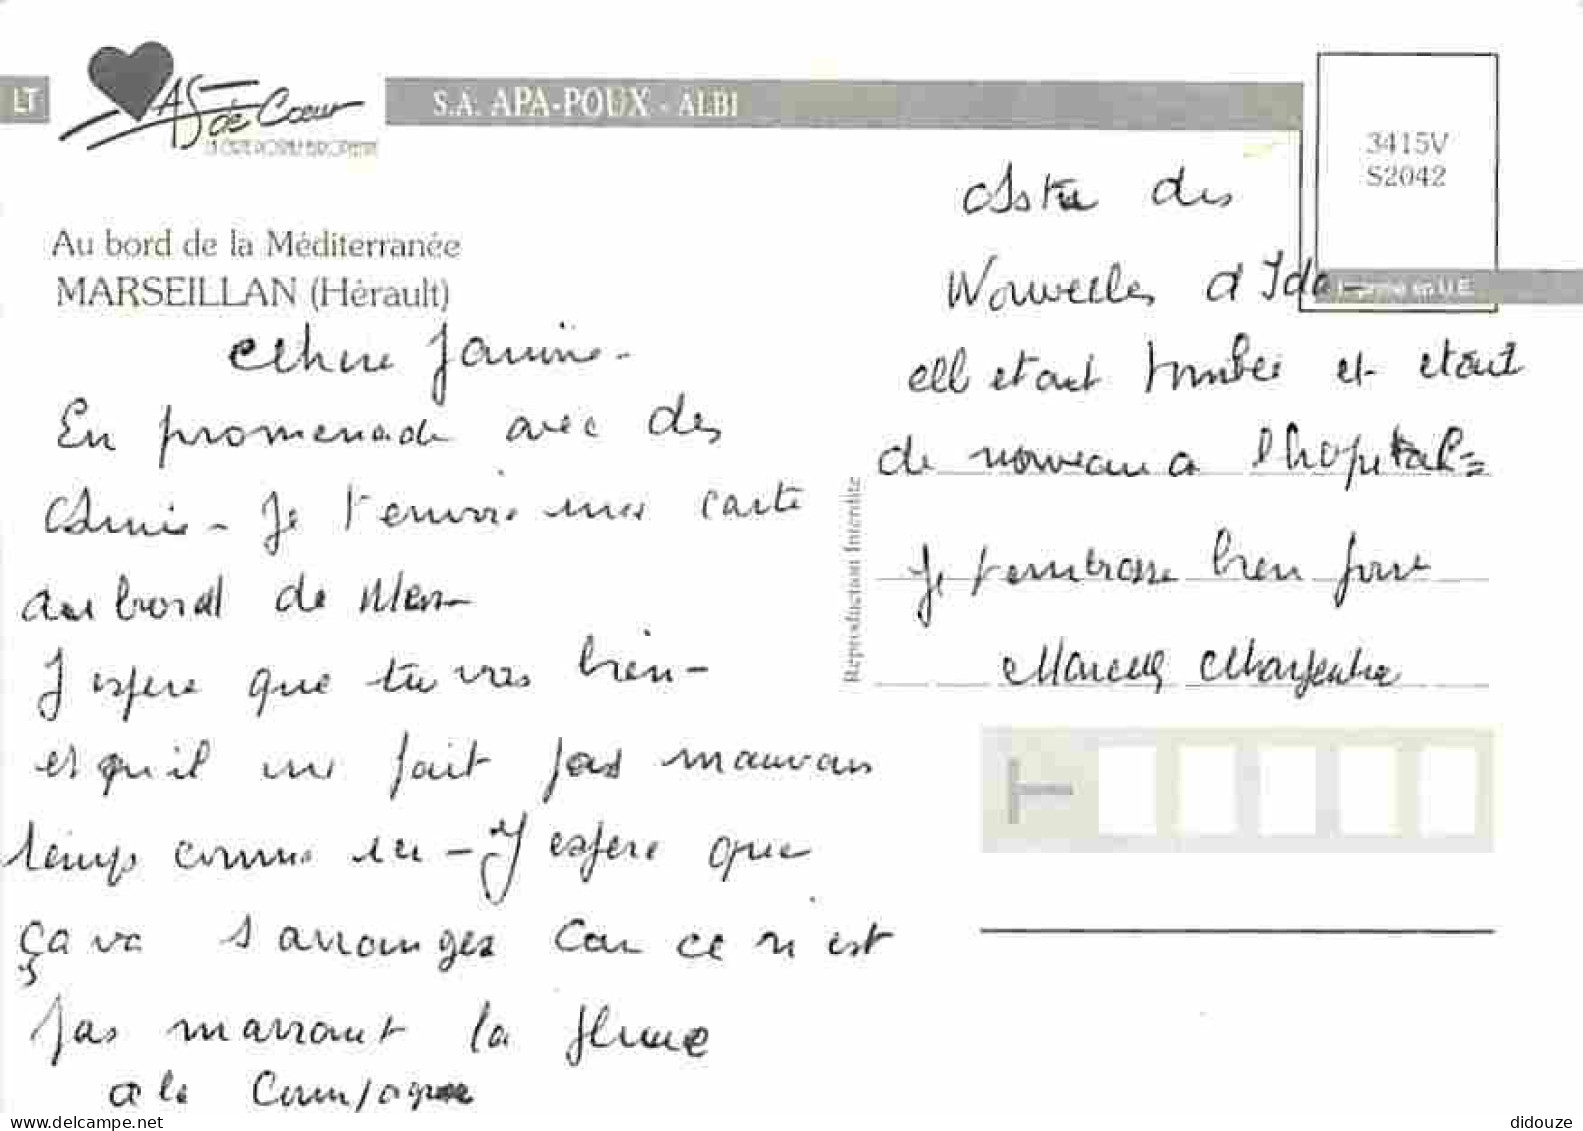 LT
As de Cœur
S.A. APA-POUX - ALBI
3415V
S2042
Imprimé en U.E.
Au bord de la Méditerranée
MARSEILLAN (Hérault)
Chere Janine -
En promenade avec des
Amis - Je t'envoie une carte
au bord de Mer -
J espere que tu vas bien -
et qu'il ne fait pas mauvais
temps comme ici - J espere que
ça va s arranger car ce n est
pas marrant la pluie
a la Campagne
Reproduction Interdite
As tu des
Nouvelles d Ida -
elle etait tombée et etait
de nouveau a l hopital =
Je t'embrasse bien fort
Marcelle Charpentier
www.delcampe.net
didouze